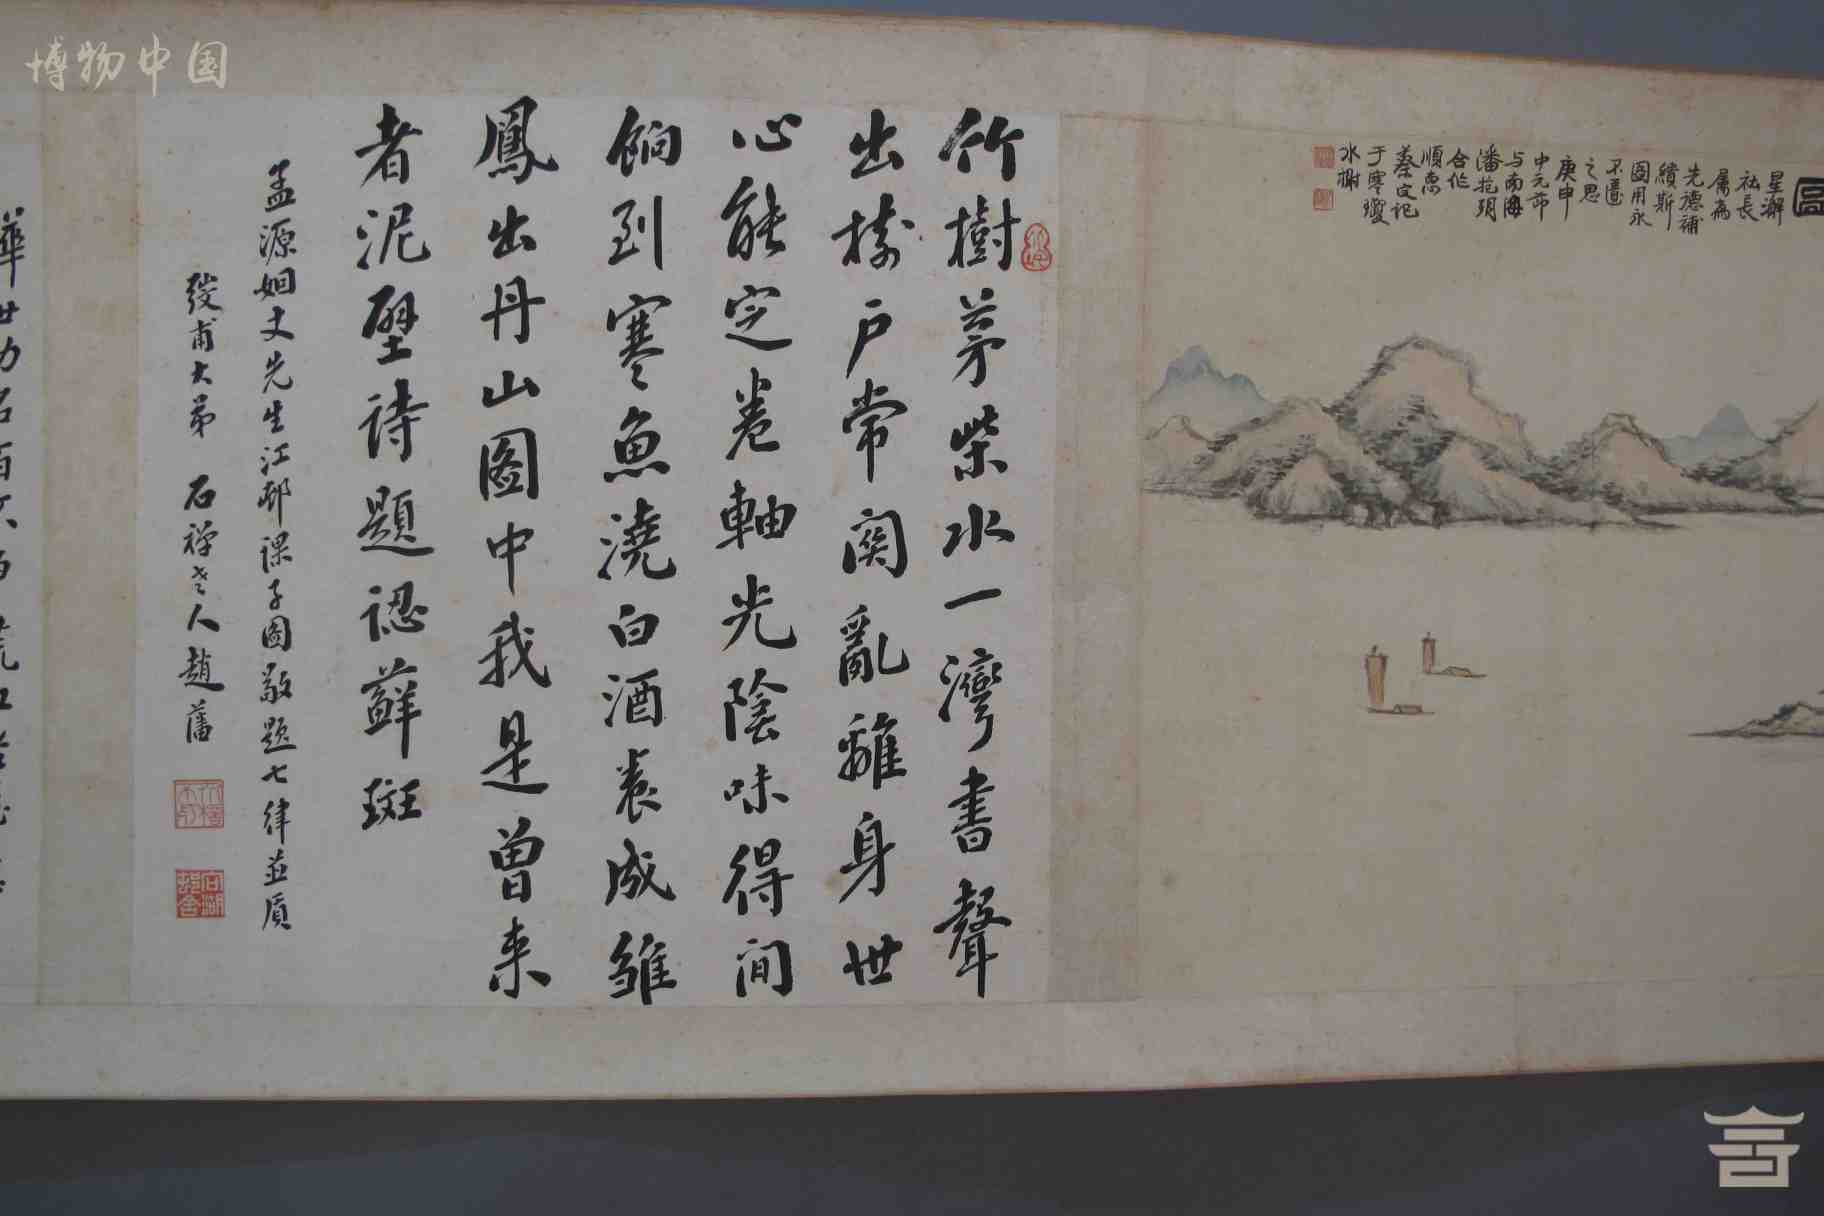 博物中国
星澥
社長
属為
先德補
繢斯
圖用永
不匱
之思
庚申
中元節
与南海
潘
合作
順惪
蔡守記
于寒瓊
水榭
竹樹茅柴水一灣書聲
出戶常関亂離身世
心能定卷軸光陰味得閒
餉到寒魚澆白酒養成雛
鳳出丹山圖中我是曾来
者泥壁詩題認蘚斑
孟源姻丈先生江邨課子圖敬題七律並質
發甫大弟 石禪老人趙藩